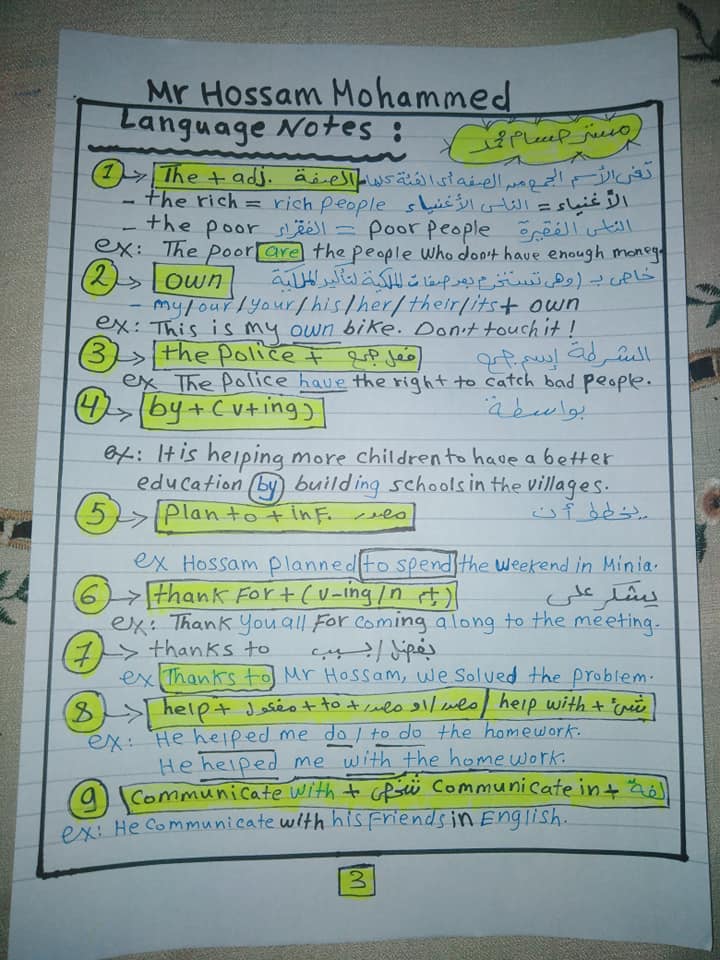 Mr Hossam Mohammed
Language Notes :
مستر حسام محمد
1 → The + adj. الصفة تعنى الأسم الجمع من الصفه أى الفئة كلها
- the rich = rich people الأغنياء = الناس الأغنياء
- the poor الفقراء = poor people الناس الفقيرة
ex: The poor are the people who don't have enough money.
2 → own خاص بـ (وهى تستخدم بعد صفات الملكية لتأكيد الملكية
- my/our/your/his/her/their/its + own
ex: This is my own bike. Don't touch it !
3 → the police + فعل جمع الشرطة إسم جمع
ex The police have the right to catch bad people.
4 → by + (v+ing) بواسطة
ex: It is helping more children to have a better
education by building schools in the villages.
5 → plan to + inf. مصدر يخطط أن
ex Hossam planned to spend the weekend in Minia.
6 → thank for + (v-ing/n إسم) يشكر على
ex: Thank you all for coming along to the meeting.
7 → thanks to بفضل / بسبب
ex Thanks to Mr Hossam, we solved the problem.
8 → help + مفعول + to + مصدر او مصدر / help with + شئ
ex: He helped me do / to do the homework.
He helped me with the homework.
9 communicate with + شخص communicate in + لغة
ex: He communicate with his friends in English.
3